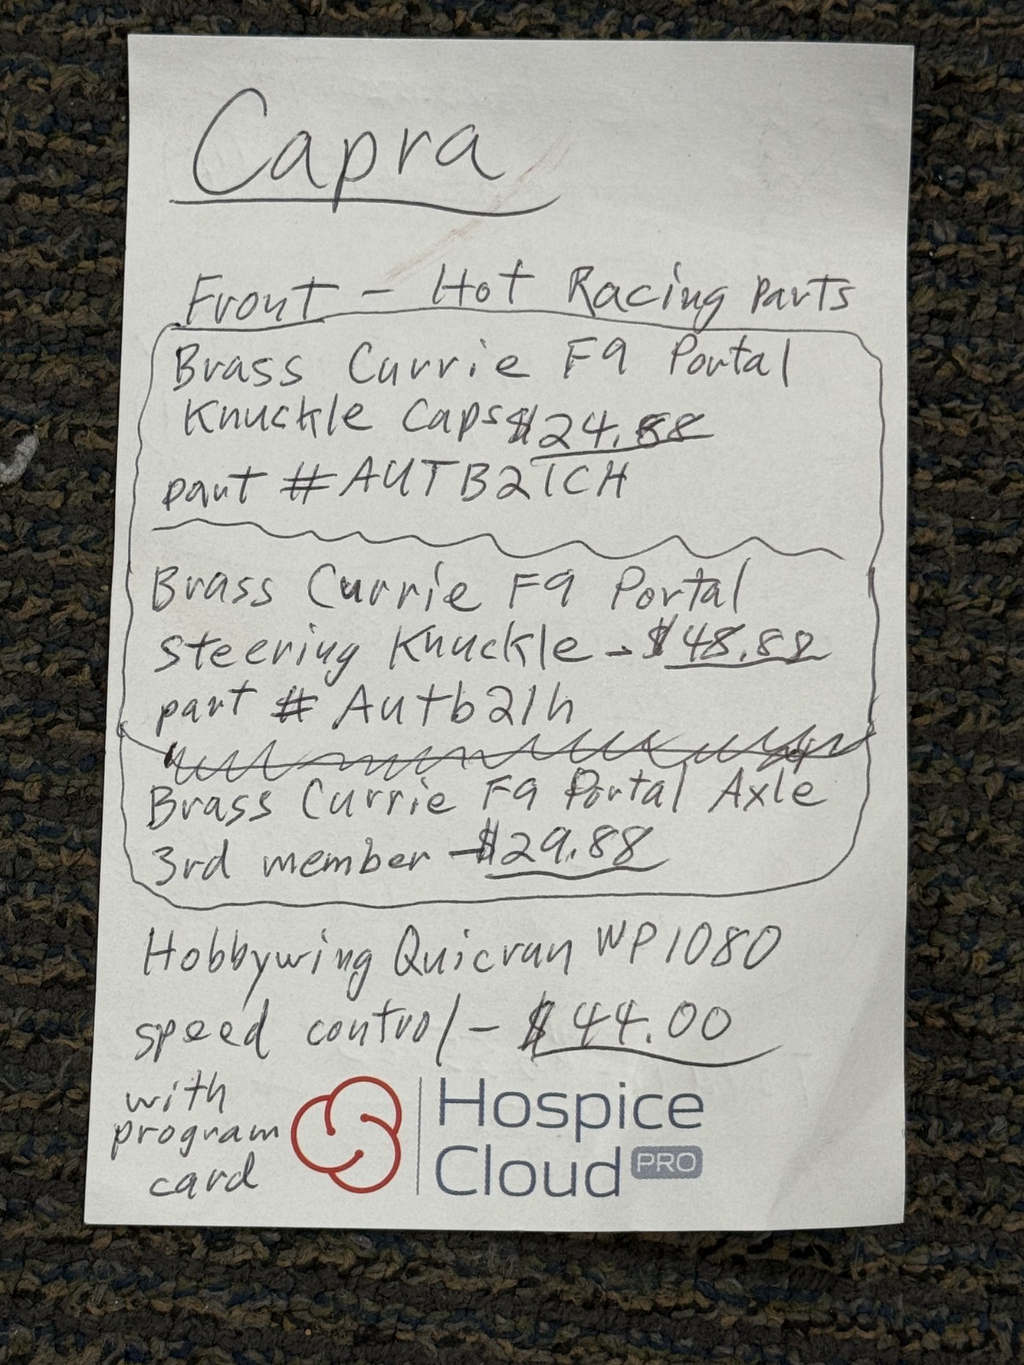 Capra
Front - Hot Racing parts
Brass Currie F9 Portal
Knuckle Caps $24.88
part # AUTB21CH
Brass Currie F9 Portal
steering Knuckle - $48.88
part # Autb21h
Brass Currie F9 Portal Axle
3rd member - $29.88
Hobbywing Quicrun WP1080
speed control - $44.00
with
program
card
Hospice
Cloud PRO